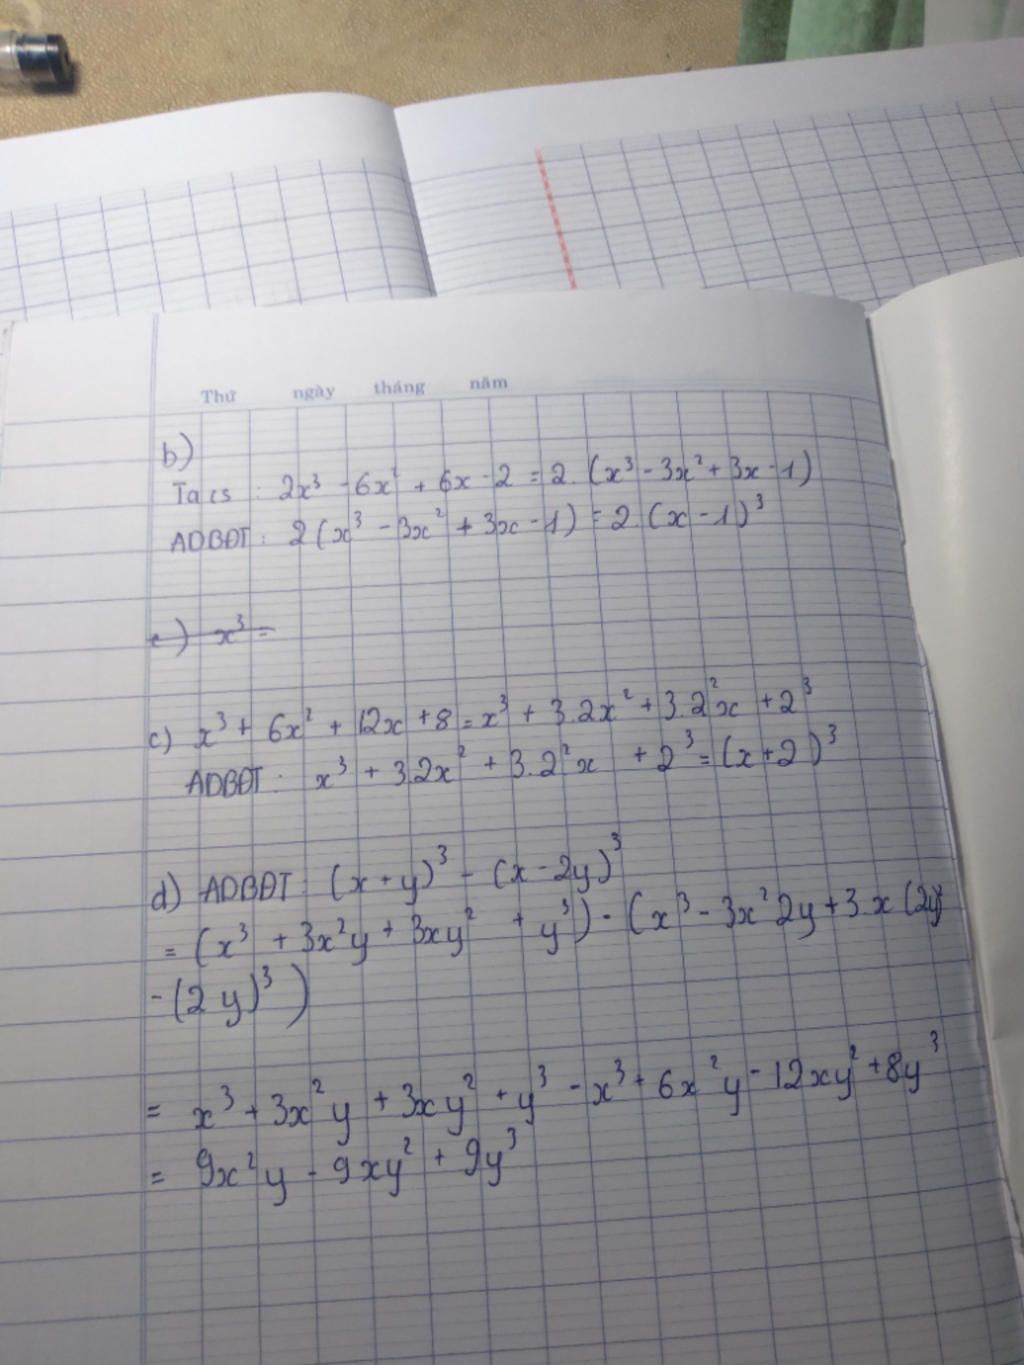 Thứ ngày tháng năm
b)
Ta cs : 2x³ - 6x² + 6x - 2 = 2. (x³ - 3x² + 3x - 1)
ADBĐT : 2 (x³ - 3x² + 3x - 1) = 2. (x - 1)³
c) x³ =
c) x³ + 6x² + 12x + 8 = x³ + 3.2x² + 3.2²x + 2³
ADBĐT : x³ + 3.2x² + 3.2²x + 2³ = (x + 2)³
d) ADBĐT : (x + y)³ - (x - 2y)³
= (x³ + 3x²y + 3xy² + y³) - (x³ - 3x²2y + 3.x (2y)²
- (2y)³ )
= x³ + 3x²y + 3xy² + y³ - x³ + 6x²y - 12xy² + 8y³
= 9x²y - 9xy² + 9y³